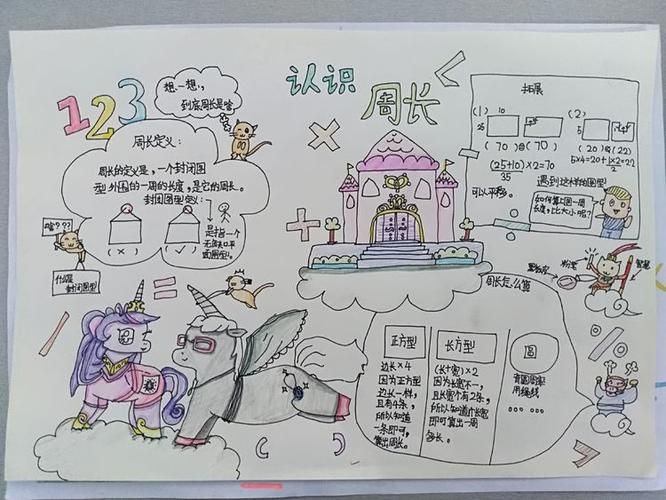 认识
周长
123
想一想,
到底周长是啥
周长定义:
周长的定义是,一个封闭图
型外围的一周的长度,是它的周长。
封闭图型定义:
(×)
(✓)
是指一个
无缺口平
面图型。
啥???
什么是
封闭图型
拓展
(1)
10
25
(70)=(70)
(25+10)×2=70
35
可以平移。
(2)
5
(20)<(22)
5×4=20
遇到这样的图型
如何算上图一周
长度,比大小呢?
智慧
周长怎么算
正方型
边长×4
因为正方型
边长一样,
且有4条,
所以知道
一条即可,
算出周长。
长方型
(长+宽)×2
因为长宽不一,
且长宽个有2条,
即可算出一周
每长。
圆
用绳线
……